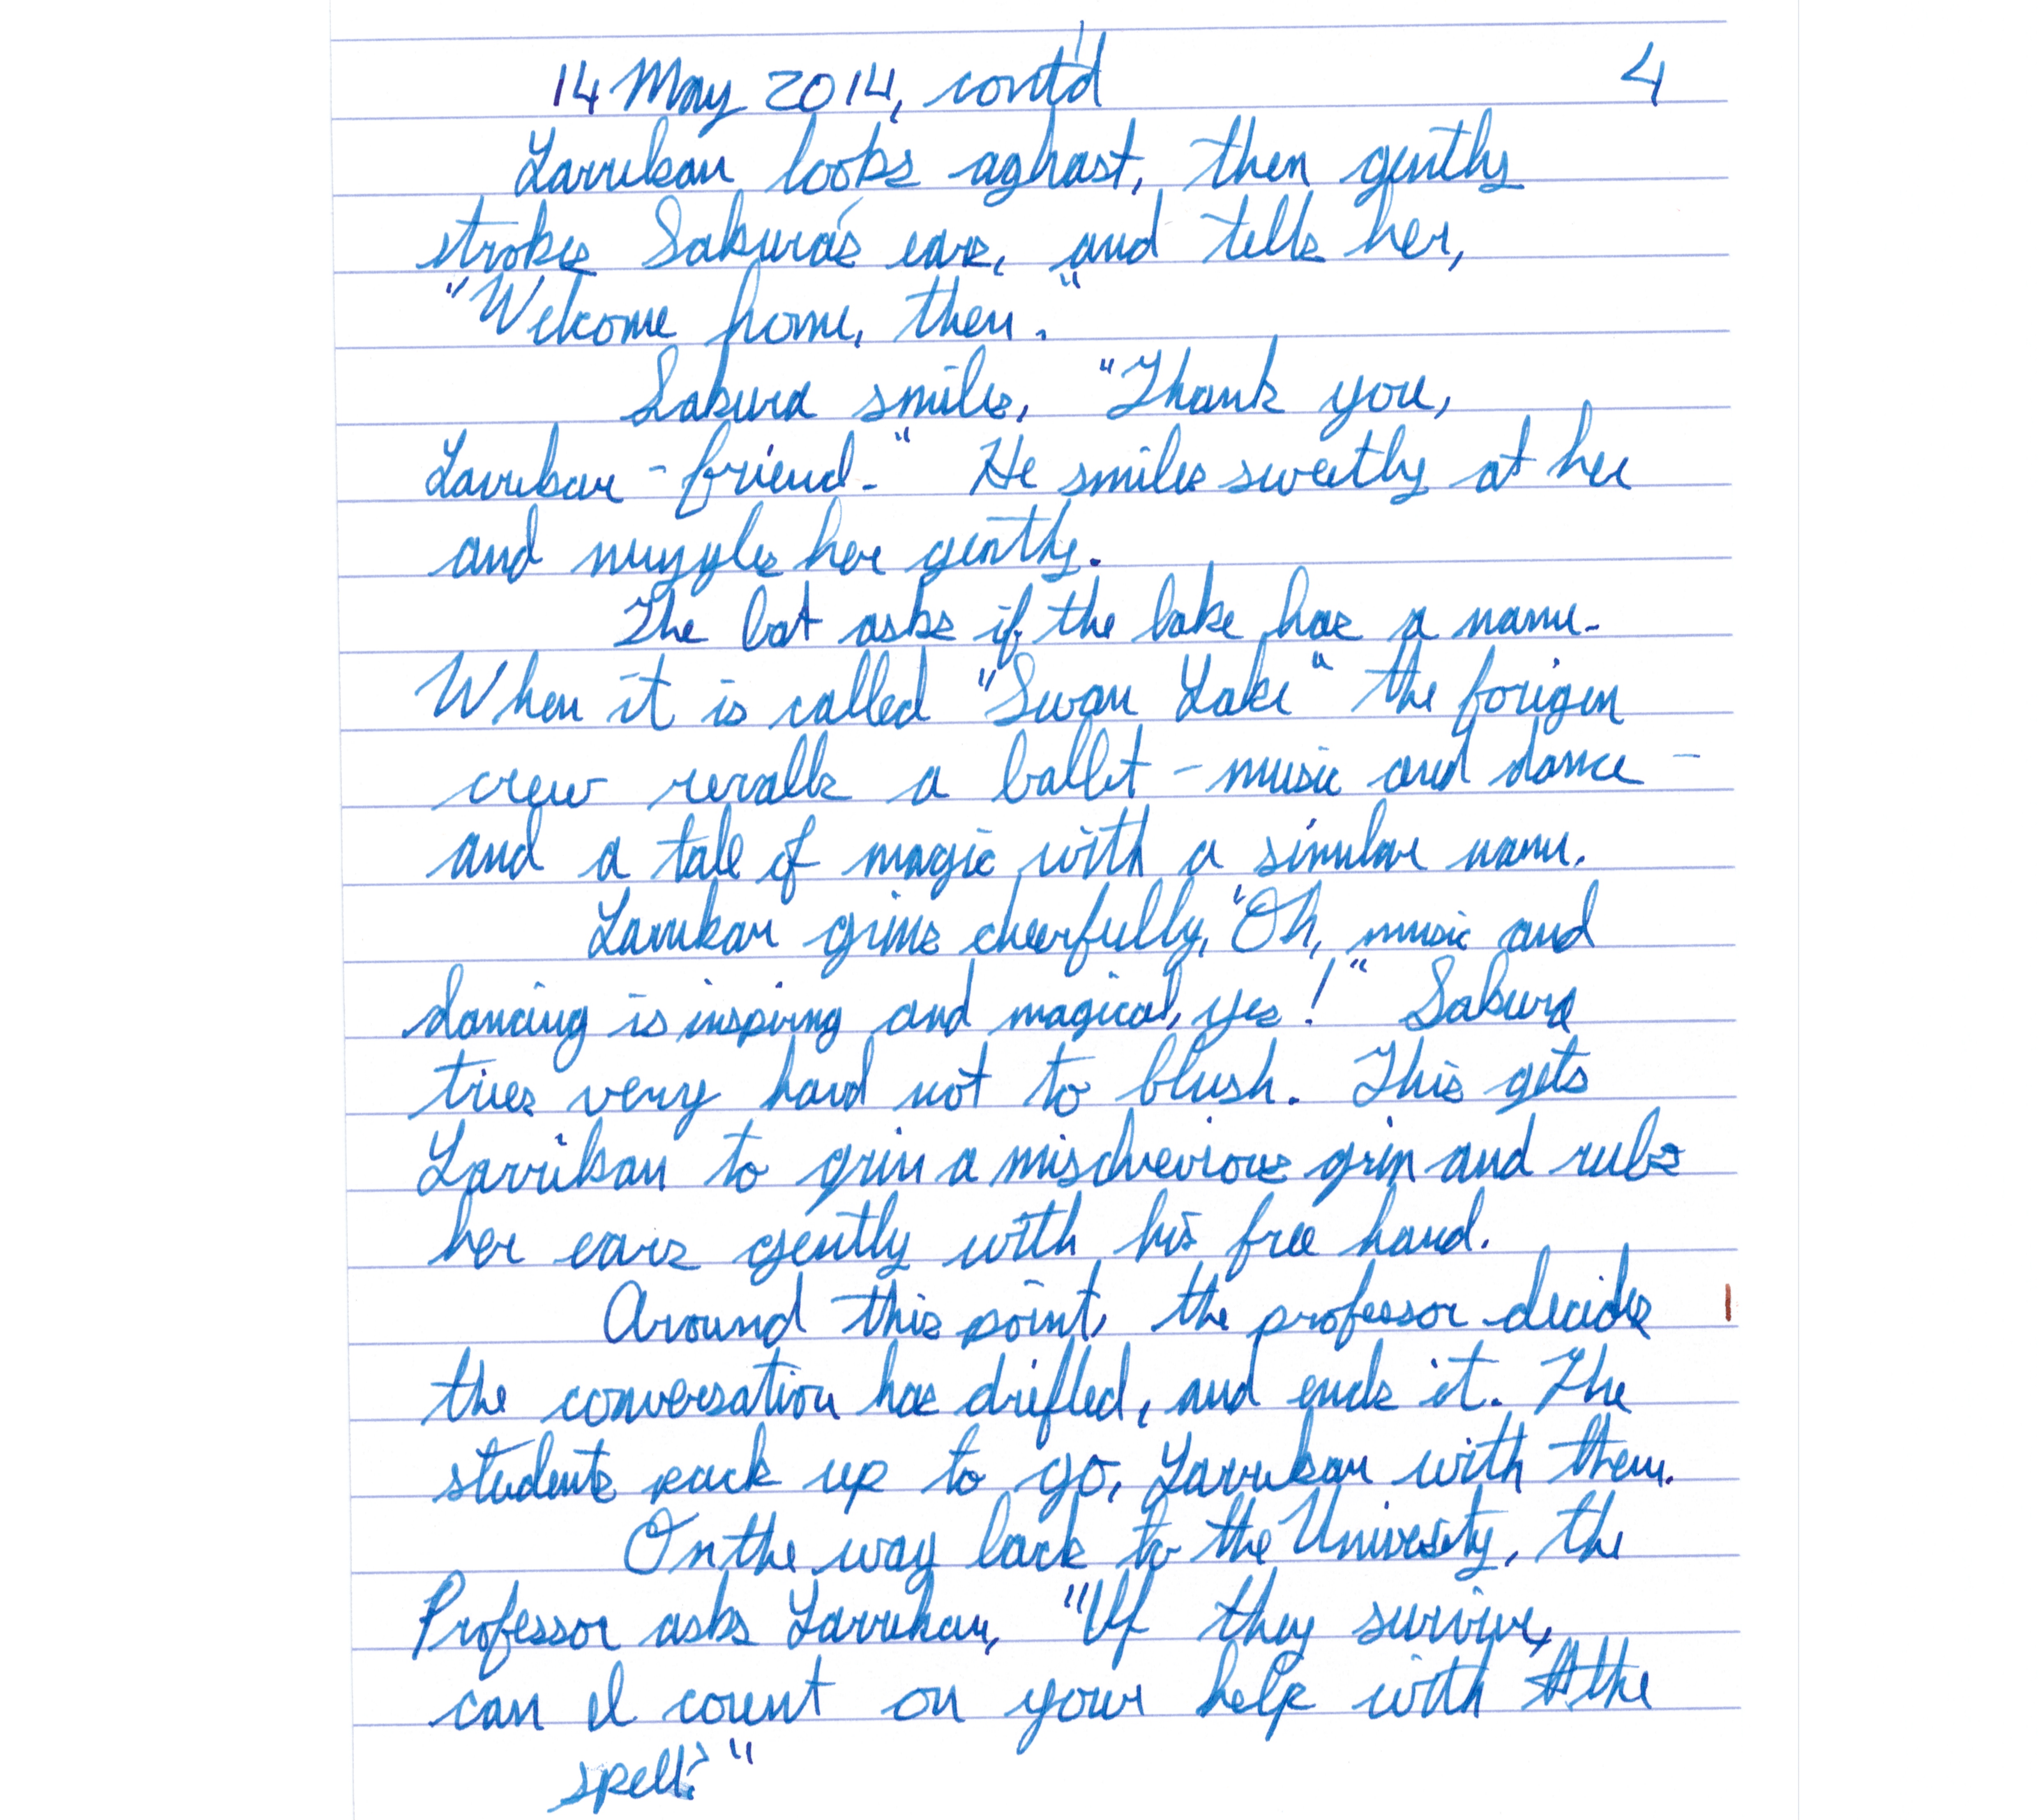 14 May 2014, cont'd 4
Larrikan looks aghast, then gently
strokes Sakura's ears, and tells her,
"Welcome home, then."
Sakura smiles, "Thank you,
Larrikan-friend." He smiles sweetly at her
and nuzzles her gently.
The bat asks if the lake has a name.
When it is called "Swan Lake" the forigen
crew recalls a ballet - music and dance -
and a tale of magic with a similar name.
Larrikan grins cheerfully, "Oh, music and
dancing is inspiring and magical, yes!" Sakura
tries very hard not to blush. This gets
Larrikan to grin a mischevious grin and rubs
her ears gently with his free hand.
Around this point, the professor decides
the conversation has drifted, and ends it. The
students pack up to go, Larrikan with them.
On the way back to the University, the
Professor asks Larrikan, "If they survive,
can I count on your help with the
spell?"